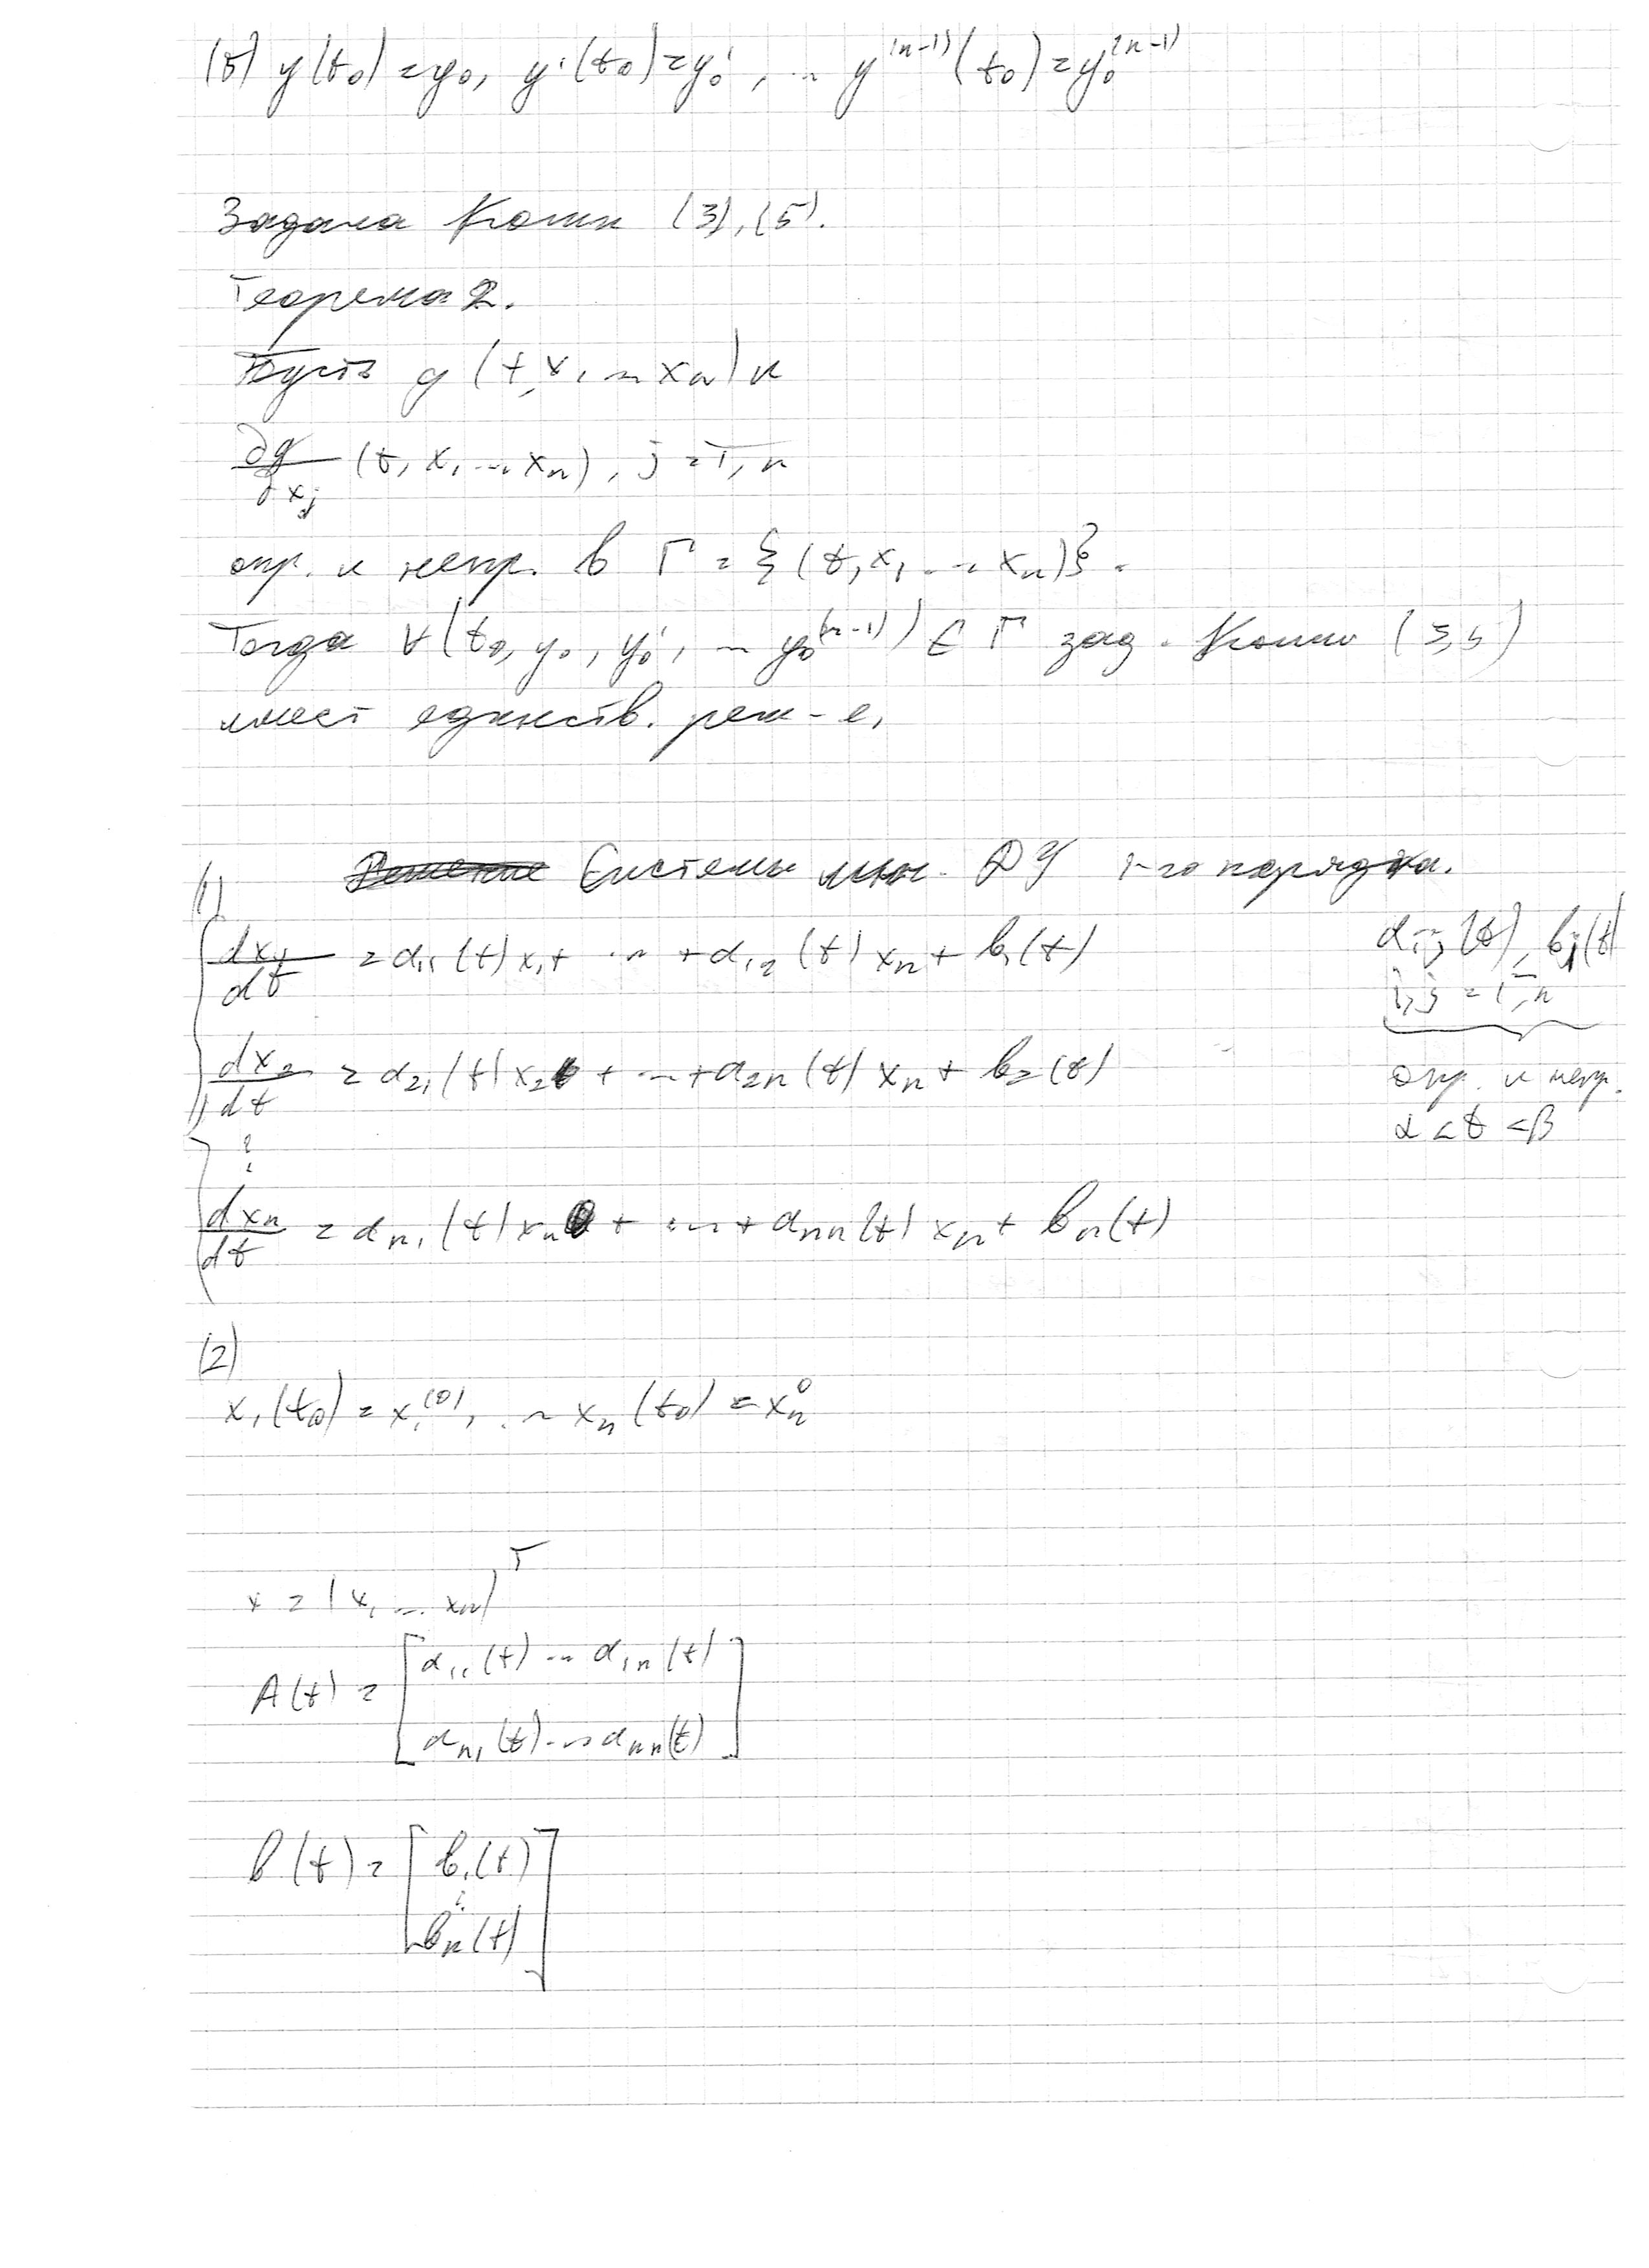 (5) y(t₀) = y₀, y'(t₀) = y₀', ... y⁽ⁿ⁻¹⁾(t₀) = y₀⁽ⁿ⁻¹⁾
Задача Коши (3), (5).
Теорема 2.
Пусть g (t, x₁ ... xₙ) и
∂g/∂xⱼ (t, x₁ ... xₙ), j = 1, n
опр. и непр. в Γ = {(t, x₁ ... xₙ)}.
Тогда ∀(t₀, y₀, y₀', ... y₀⁽ⁿ⁻¹⁾) ∈ Γ зад. Коши (3,5)
имеет единств. реш-е.
Системы лин. ДУ 1-го порядка.
(1)
dx₁/dt = a₁₁(t)x₁ + ... + a₁₂(t)xₙ + b₁(t)
aᵢⱼ(t), bⱼ(t)
i, j = 1, n
dx₂/dt = a₂₁(t)x₂ + ... + a₂ₙ(t)xₙ + b₂(t)
опр. и непр.
α < t < β
⋮
dxₙ/dt = aₙ₁(t)xₙ + ... + aₙₙ(t)xₙ + bₙ(t)
(2)
x₁(t₀) = x₁⁽⁰⁾, ... xₙ(t₀) = xₙ⁰
x = (x₁ ... xₙ)ᵀ
A(t) = [a₁₁(t) ... a₁ₙ(t)
aₙ₁(t) ... aₙₙ(t)]
b(t) = [b₁(t)
⋮
bₙ(t)]